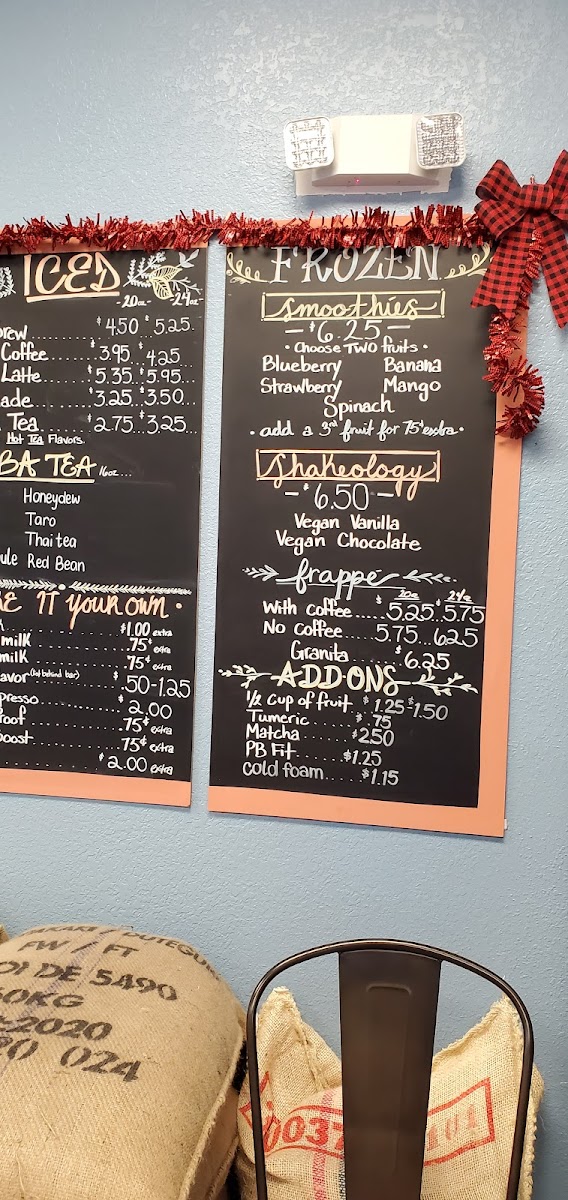 ICED
20oz 24oz
rew $4.50 $5.25
Coffee $3.95 $4.25
Latte $5.35 $5.95
ade $3.25 $3.50
Tea $2.75 $3.25
Hot Tea Flavors
BA TEA 16oz
Honeydew
Taro
Thai tea
ule Red Bean
E IT your own
$1.00 extra
milk .75¢ extra
milk .75¢ extra
avor (hot behind bar) $.50-1.25
presso $2.00
roof .75¢ extra
boost .75¢ extra
$2.00 extra
FROZEN
Smoothies
- $6.25 -
• Choose TWO fruits •
Blueberry Banana
Strawberry Mango
Spinach
• add a 3rd fruit for 75¢ extra •
Shakeology
- $6.50 -
Vegan Vanilla
Vegan Chocolate
frappé
20z 24z
With coffee $5.25 $5.75
No Coffee 5.75 6.25
Granita $6.25
ADD-ONS
1/2 Cup of fruit $1.25 $1.50
Tumeric $.75
Matcha $2.50
PB Fit $1.25
cold foam $1.15
FW / FT
DI DE 5490
60KG
2020
20 024
0037
101